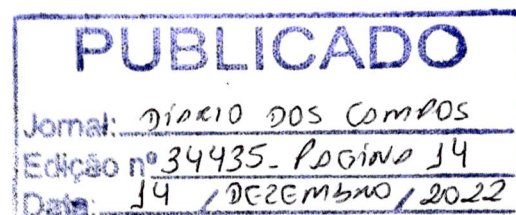 PUBLICADO
Jornal: DIÁRIO DOS CAMPOS
Edição nº 34435 - PÁGINA 14
Data: 14 / DEZEMBRO / 2022